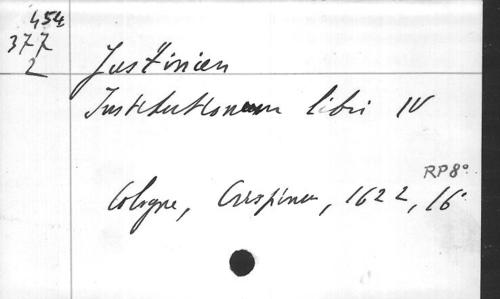 454
377
2
Justinien
Institutionum libri IV
RP8°
Cologne, Crispinus, 1622, 16°